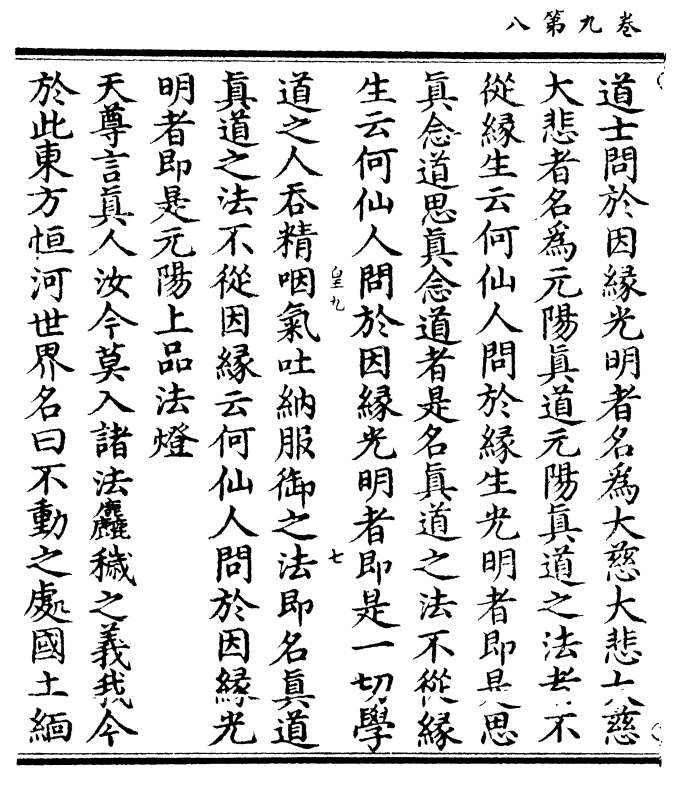 卷九第八
道士問於因緣光明者名爲大慈大悲大慈
大悲者名爲元陽眞道元陽眞道之法者不
從緣生云何仙人問於緣生光明者即是思
眞念道思眞念道者是名眞道之法不從緣
生云何仙人問於因緣光明者即是一切學
皇九
七
道之人吞精咽氣吐納服御之法即名眞道
眞道之法不從因緣云何仙人問於因緣光
明者即是元陽上品法燈
天尊言眞人汝今莫入諸法麤穢之義我今
於此東方恒河世界名曰不動之處國土緬